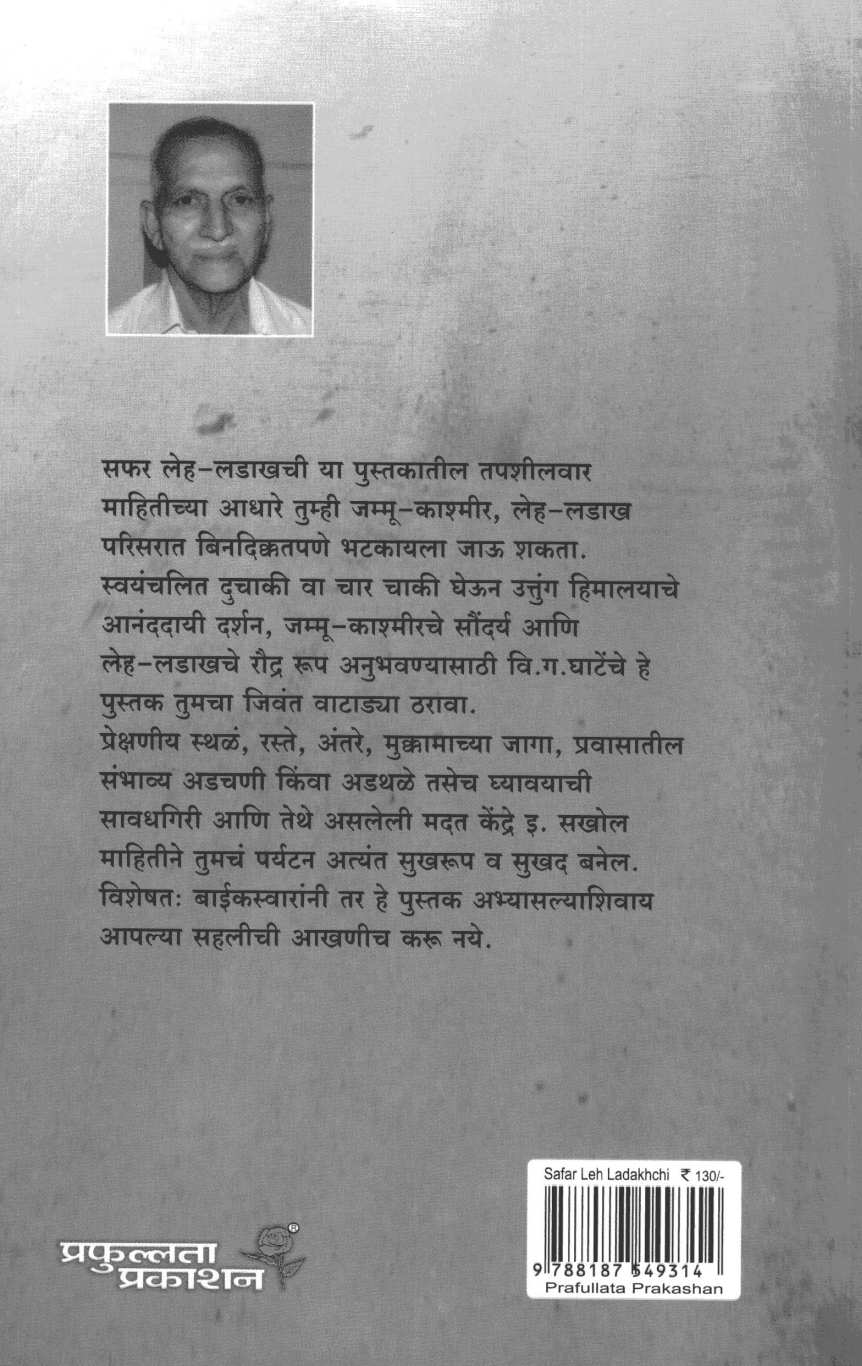 सफर लेह–लडाखची या पुस्तकातील तपशीलवार
माहितीच्या आधारे तुम्ही जम्मू–काश्मीर, लेह–लडाख
परिसरात बिनदिक्कतपणे भटकायला जाऊ शकता.
स्वयंचलित दुचाकी वा चार चाकी घेऊन उत्तुंग हिमालयाचे
आनंददायी दर्शन, जम्मू–काश्मीरचे सौंदर्य आणि
लेह–लडाखचे रौद्र रूप अनुभवण्यासाठी वि.ग.घाटेंचे हे
पुस्तक तुमचा जिवंत वाटाड्या ठरावा.
प्रेक्षणीय स्थळं, रस्ते, अंतरे, मुक्कामाच्या जागा, प्रवासातील
संभाव्य अडचणी किंवा अडथळे तसेच घ्यावयाची
सावधगिरी आणि तेथे असलेली मदत केंद्रे इ. सखोल
माहितीने तुमचं पर्यटन अत्यंत सुखरूप व सुखद बनेल.
विशेषतः बाईकस्वारांनी तर हे पुस्तक अभ्यासल्याशिवाय
आपल्या सहलीची आखणीच करू नये.
Safar Leh Ladakhchi ₹ 130/-
9 788187 549314
Prafullata Prakashan
प्रफुल्लता ®
प्रकाशन